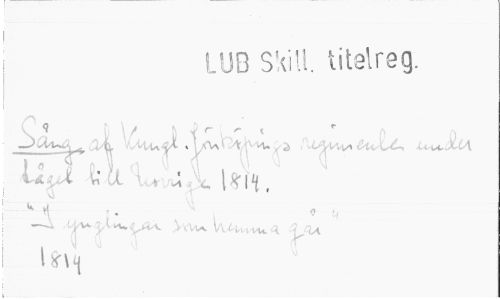 LUB Skill. titelreg.
Sång af Kungl. Jönköpings regimente under
tåget till Norrige 1814.
"I ynglingar som hemma går"
1814